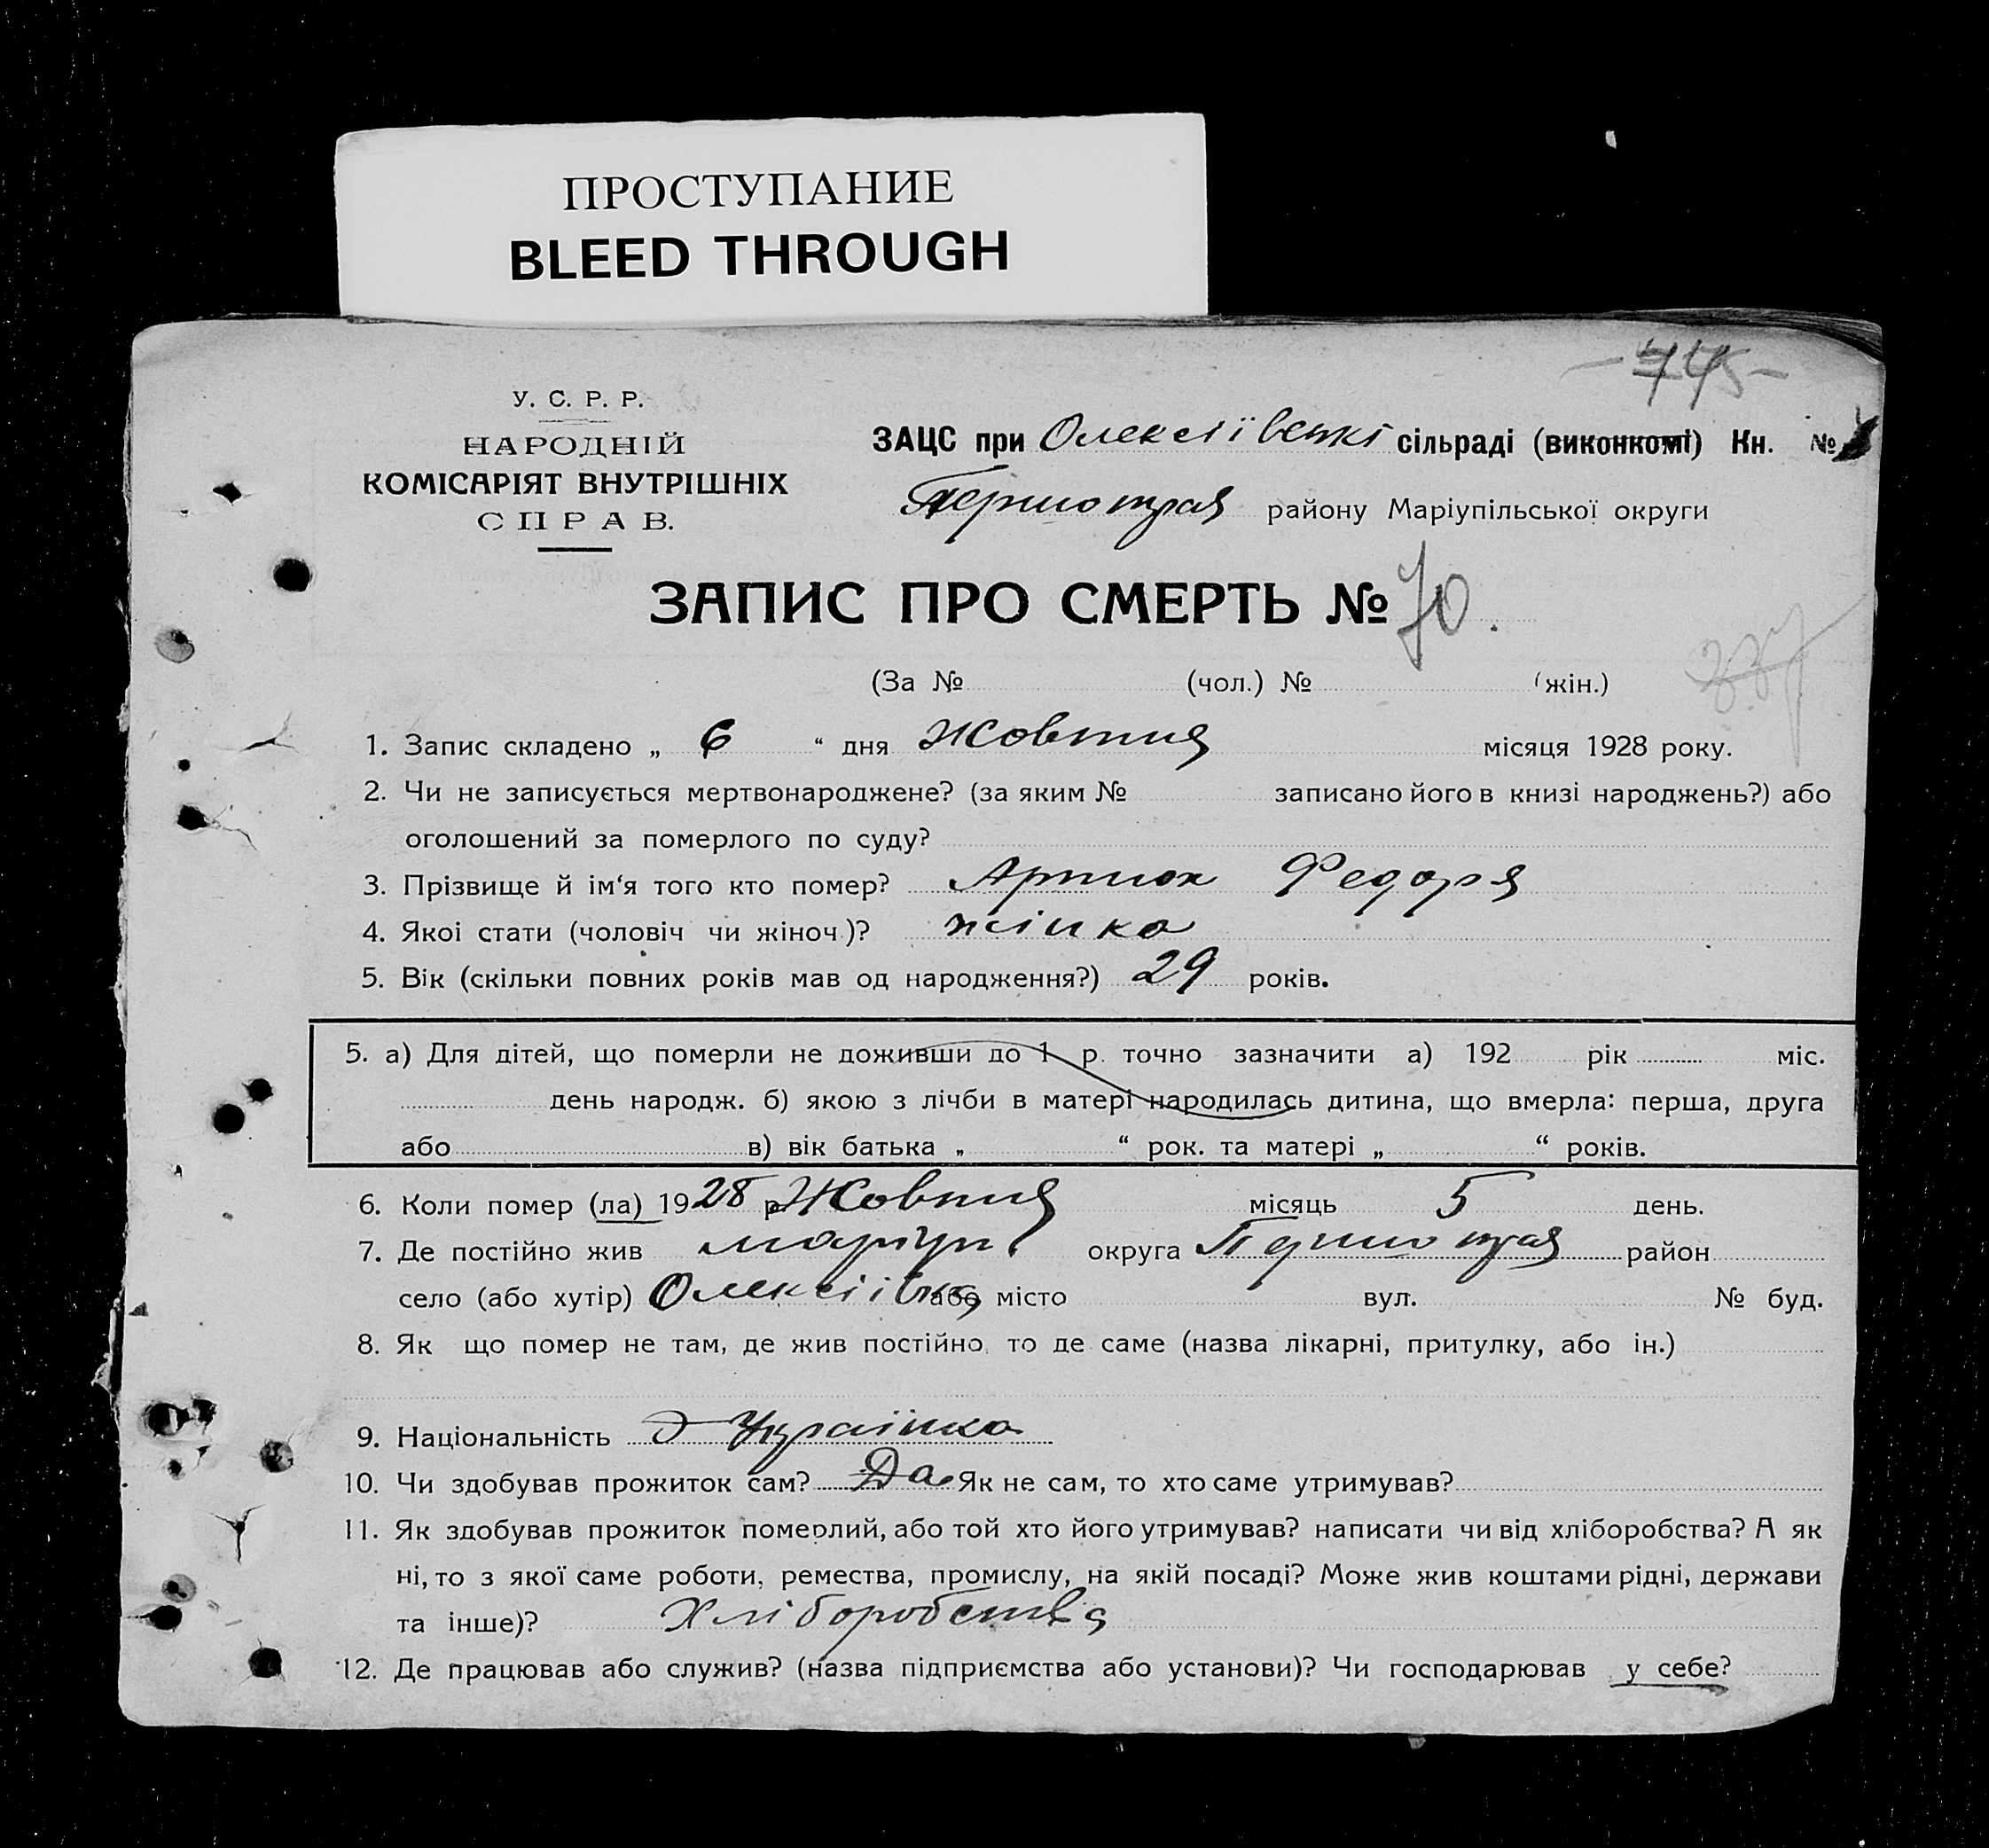 ПРОСТУПАНИЕ
BLEED THROUGH
У. С. Р. Р.
НАРОДНІЙ
КОМІСАРІЯТ ВНУТРІШНІХ
СПРАВ.
ЗАЦС при Олексіївські сільраді (виконкомі) Кн. №
Першотрав району Маріупільської округи
ЗАПИС ПРО СМЕРТЬ № 70.
(За № (чол.) № (жін.)
1. Запис складено „ 6 “ дня Жовтня місяця 1928 року.
2. Чи не записується мертвонароджене? (за яким № записано його в книзі народжень?) або
оголошений за померлого по суду?
3. Прізвище й ім‘я того кто помер? Артюх Федоря
4. Якоі стати (чоловіч чи жіноч.)? жінка
5. Вік (скільки повних років мав од народження?) 29 років.
5. а) Для дітей, що померли не доживши до 1 р. точно зазначити а) 192 рік міс.
день народж. б) якою з лічби в матері народилась дитина, що вмерла: перша, друга
або в) вік батька „ “ рок. та матері „ “ років.
6. Коли помер (ла) 1928 р Жовтня місяць 5 день.
7. Де постійно жив Маріуп. округа Першотрав район
село (або хутір) Олексіївка або місто вул. № буд.
8. Як що помер не там, де жив постійно, то де саме (назва лікарні, притулку, або ін.)
9. Національність Українка
10. Чи здобував прожиток сам? Да Як не сам, то хто саме утримував?
11. Як здобував прожиток померлий, або той хто його утримував? написати чи від хліборобства? А як
ні, то з якої саме роботи, ремества, промислу, на якій посаді? Може жив коштами рідні, держави
та інше)? Хліборобства
12. Де працював або служив? (назва підприємства або установи)? Чи господарював у себе?